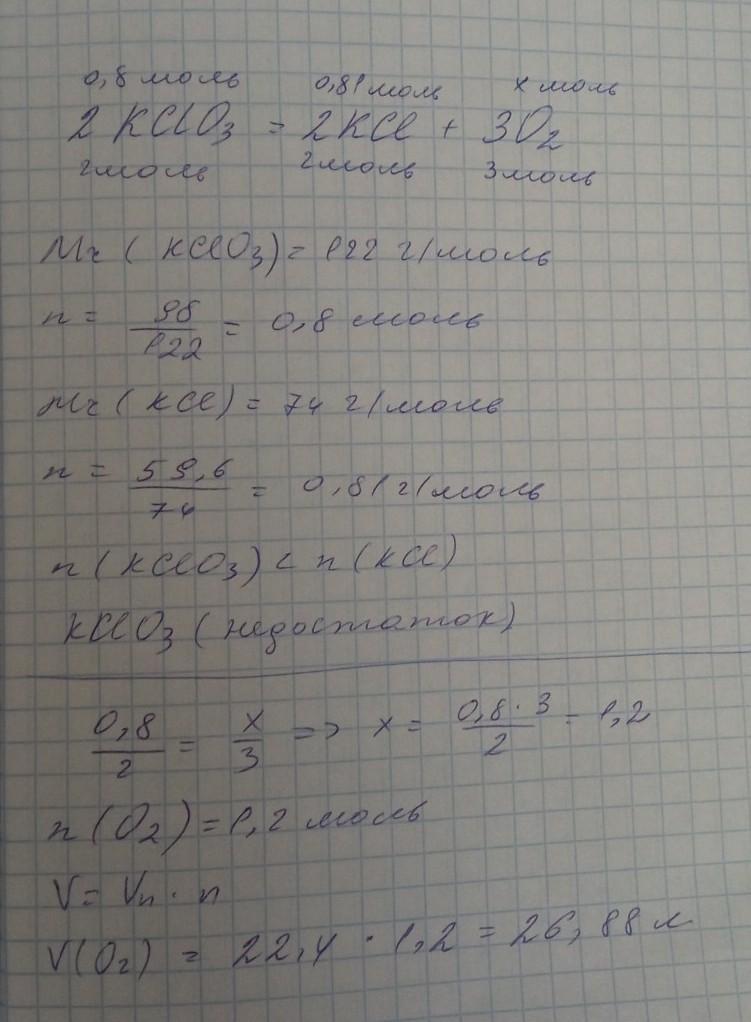 0,8 моль 0,81 моль x моль
2 KClO3 = 2KCl + 3O2
2моль 2моль 3моль
Mr ( KClO3) = 122 г/моль
n = 98/122 = 0,8 моль
Mr ( KCl) = 74 г/моль
n = 59,6/74 = 0,81 г/моль
n (KClO3) < n (KCl)
KClO3 (недостаток)
0,8/2 = x/3 => x = 0,8 · 3/2 = 1,2
n (O2) = 1,2 моль
V = Vn · n
V(O2) = 22,4 · 1,2 = 26,88 л